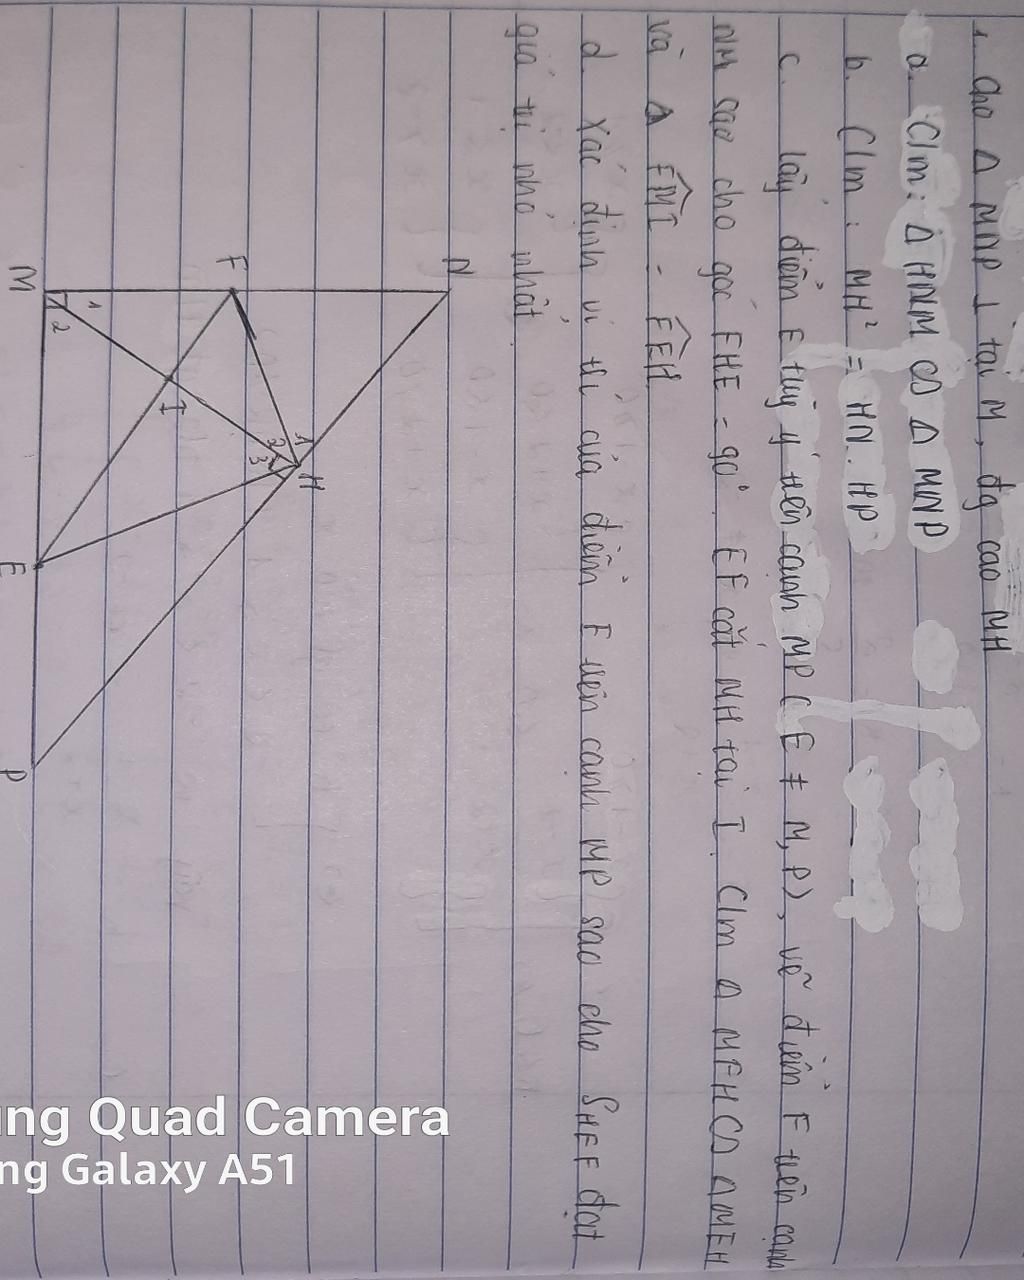 1. Cho Δ MNP ⊥ tại M, đg cao MH
a. C/m: Δ HNM ∽ Δ MNP
b. C/m: MH² = HN.HP
c. lấy điểm E tùy ý trên cạnh MP (E ≠ M, P), vẽ điểm F trên cạnh
NM sao cho góc FHE = 90°. EF cắt MH tại I. C/m Δ MFH ∽ ΔMEH
và Δ FMI = FEH
d. Xác định vị trí của điểm E trên cạnh MP sao cho S HEF đạt
giá trị nhỏ nhất
N
F
M
1
2
I
1
2
3
H
E
P
ng Quad Camera
ng Galaxy A51